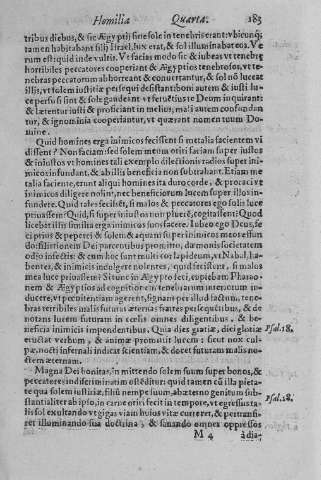 Homilia Quarta. 183
tribus diebus, & sic Ægyptij sine sole in tenebris erant: vbicunq;
tamen habitabant filij Israel, lux erat, & sol illuminabat eos. Ve
rum est: quid inde vultis. Vt facias modo sic & iubeas vt tenebrę
horribiles peccatores cooperiant & Ægyptios tenebrosos, vt te-
nebras peccatorum abhorreant & conuertantur, & sol nō luceat
illis, vt solem iustitiæ persequi desistant: boni autem & iusti lu-
ce persu si sint & sole gaudeant vt
& lætentur iusti & proficiant in melius, mali autem confundan
tur, & ignominia cooperiantur, vt quærant nomen tuum Do-
mine.
Quid homines erga inimicos fecissent si metalia facientem vi
dissent? Non faciam: sed solem meum oriri faciam super iustos
& iniustos vt homines tali exemplo dilectionis radios super ini
micos infundant, & ab illis beneficia non subtrahant. Etiam me
talia faciente, erunt aliqui homines ita duro corde, & procaci vt
inimicos diligere nolint, nec beneficiorum lucem super illos in-
fundere. Quid tales fecissēt, si malos & peccatores ego solis luce
priuassem? Quid, si super iniustos non pluerē, cogitassent: Quod
licebat illis similia erga inimicos suos facere. Iubeo ego Deus, fa
ci prius &
do:
odio infectis: & cum hoc sunt multi cor lapideum, vt Nabal, ha-
bentes, & inimicis indulgere nolentes, quid fecissent, si malos
mea luce priuassem? Si tunc in Ægypto feci, cupiebam Pharao-
nem & Ægyptios ad cognitionem tenebrarum interiorum in-
ducere, vt pœnitentiam agerent, signans per illud factum, tene-
bras terribiles malis futuras æternas: fratres persequētibus, & do
notans lucem futuram in cœlis omnes diligentibus, & be-
neficia inimicis impendentibus. Quia dies gratiæ, diei gloriæ
eructat verbum, & animæ promittit lucem: sicut nox cul-
pæ, nocti infernali indicat scientiam, & docet futuram malis no-
ctem æternam.
Psal. 18.
Magna Dei bonitas, in mittendo solem suum super bonos, &
peccatores indiscriminatim ostēditur: quid tamen cū illa pieta-
te qua solem iustitiæ, filiū nempe suum, ab æterno genitum sub-
stantialiter ab ipso, in carne oriri fecit in tempore, vt egressus ta-
lis sol exultando vt gigas viam huius vitæ curreret, & pertransi-
ret illuminando sua doctrina, & sanando omnes oppressos
Psal. 18.
M 4 à dia-